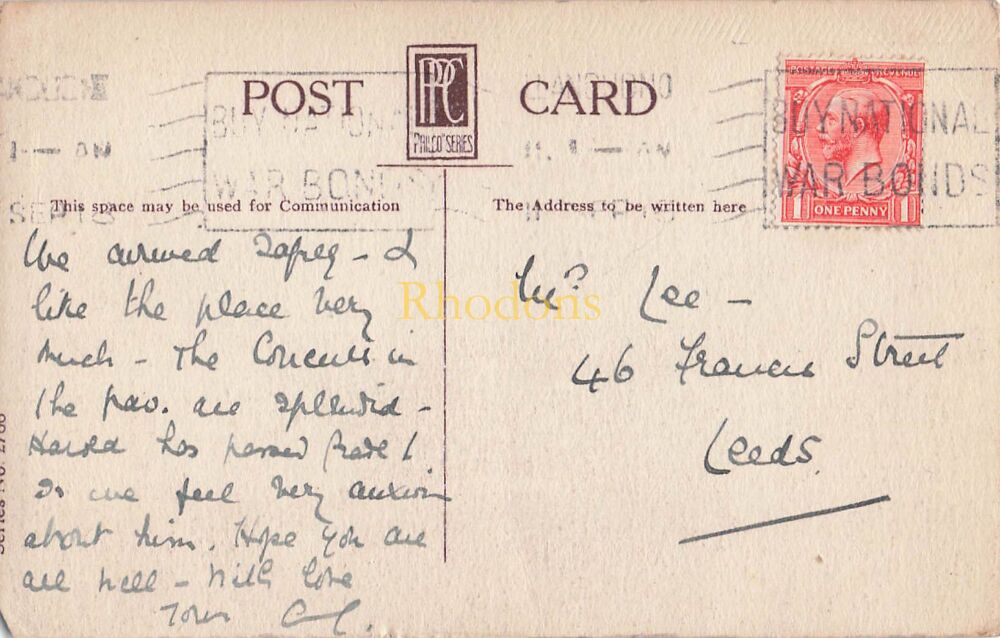 POST CARD
PPC
"PHILCO" SERIES
BUY NATIONAL
WAR BONDS
BUY NATIONAL
WAR BONDS
SEP
ONE PENNY
1 1
This space may be used for Communication
The Address to be written here
We arrived safely - &
like the place very
much - The Concerts in
the pav. are splendid -
Harold has passed Grade 1
So we feel very anxious
about him. Hope you are
all well - With love
Mrs Lee -
46 Francis Street
Leeds
Rhodons
Series No.